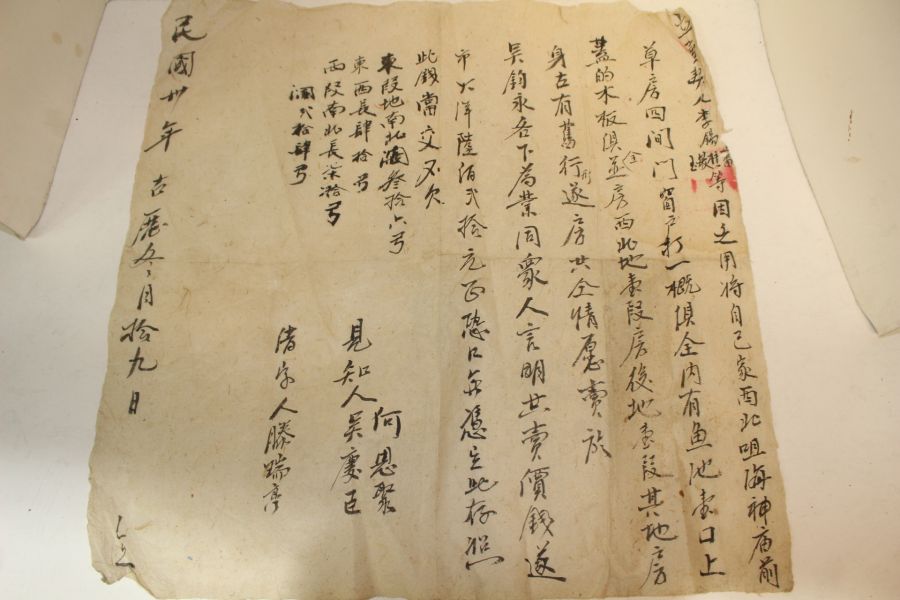 立賣契人李賜等因乏用將自己家西北咀海神庙前
草房四间门窗户打一概俱全内有魚池壹口上
蓋的木板俱全並房西北地壹段房後地壹段其地房
身古有舊行遂房共仝情愿賣於
吳鈞永名下為業同衆人言明共賣價錢遂
市大洋陸伯弍拾元正恐口無憑立此存照
此錢當交不欠
東段地南北濶叁拾六弓
東西長肆拾弓
西段南北長柒拾弓
濶弍拾肆弓
何恩聚
見知人吳慶臣
清字人滕瑞亭
民國卅年古曆冬月拾九日
立